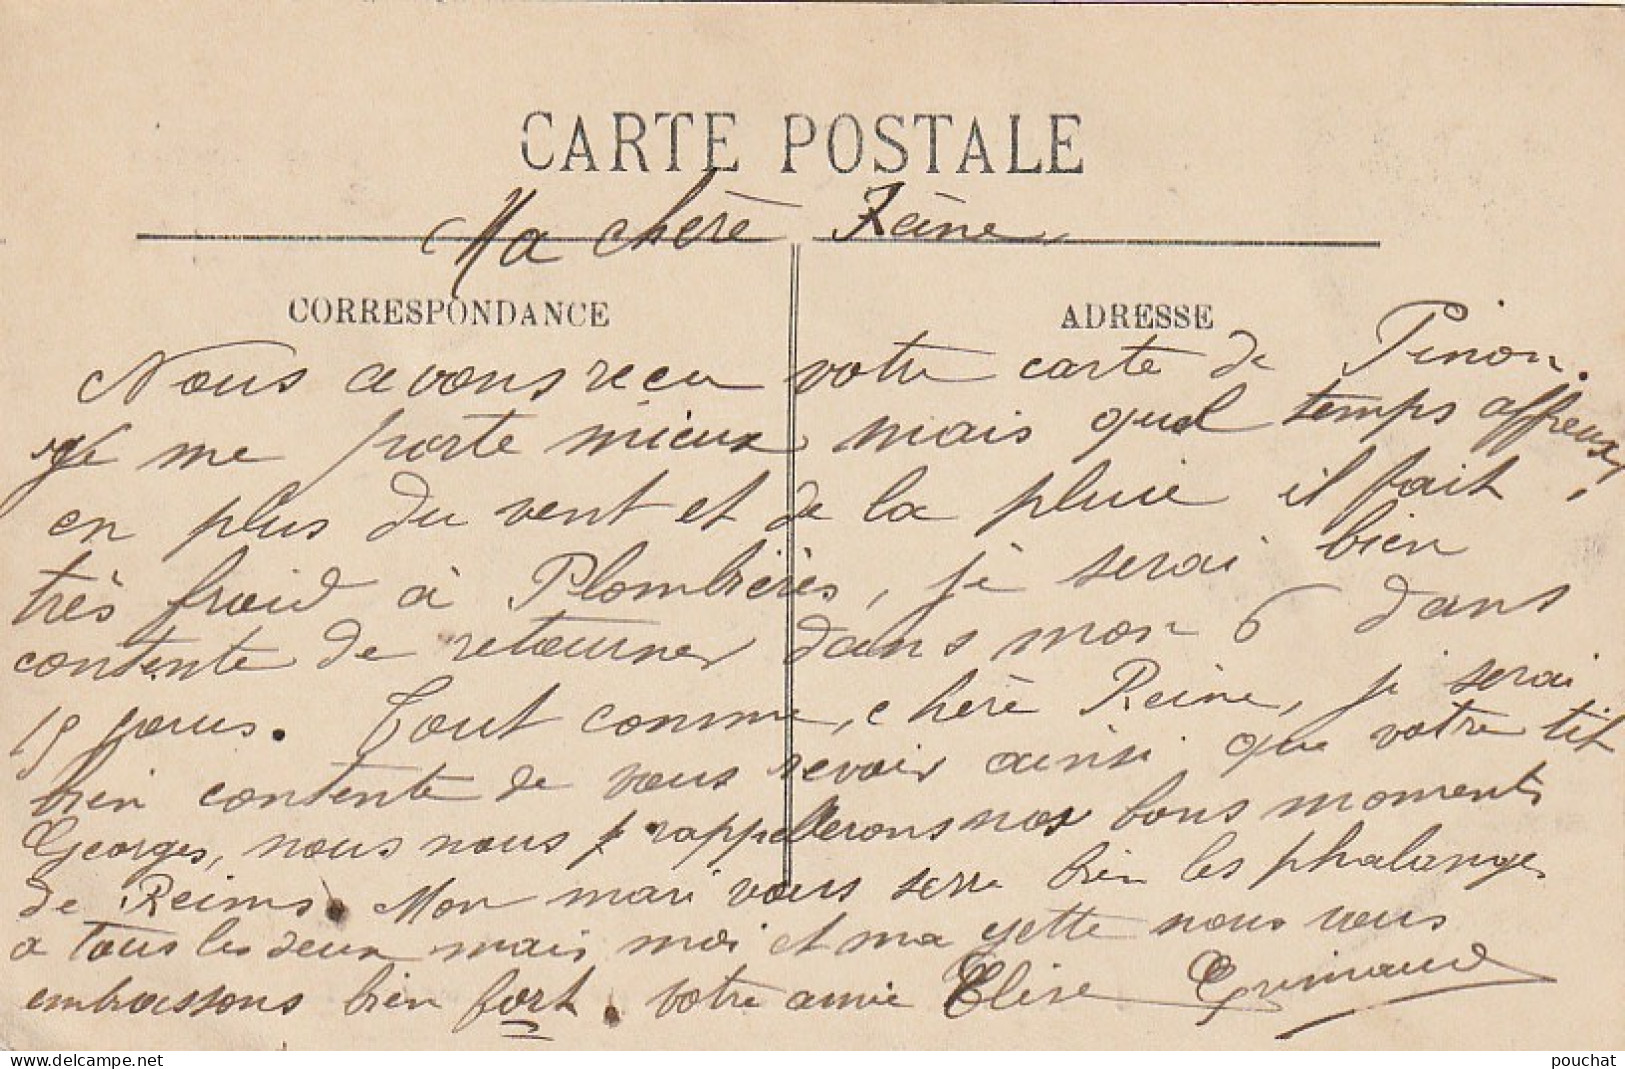 CARTE POSTALE
Ma chère Reine
CORRESPONDANCE
ADRESSE
Nous avons reçu votre carte de Pinon.
Je me porte mieux mais quel temps affreux,
en plus du vent et de la pluie il fait
très froid à Plombières, je serai bien
contente de retourner dans mon 6 dans
15 jours. Tout comme, chère Reine, je serai
bien contente de vous revoir ainsi que votre tit
Georges, nous nous rappellerons nos bons moments
de Reims. Mon mari vous serre bien les phalanges
a tous les deux mais moi et ma gette nous vous
embrassons bien fort. votre amie Elise Grimaud
www.delcampe.net
pouchat